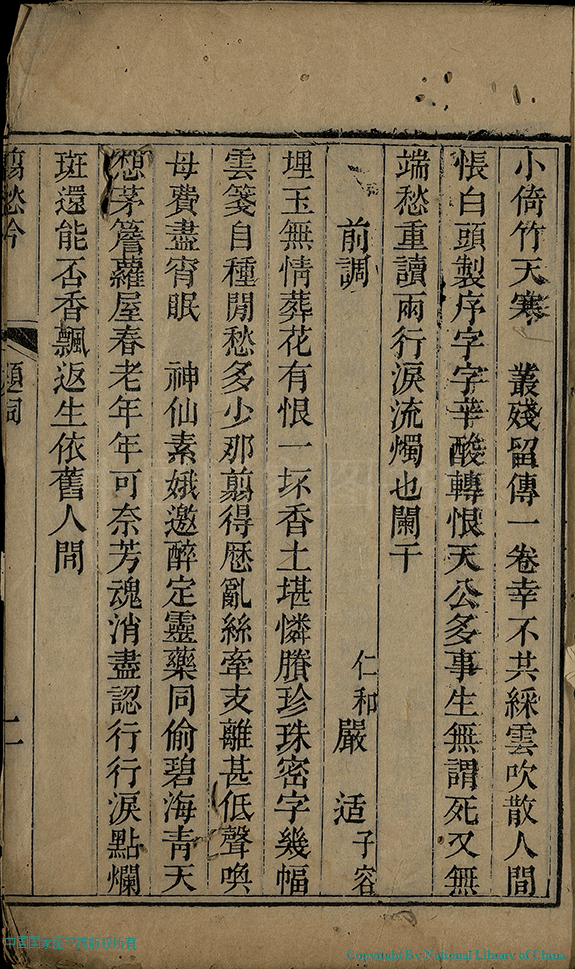 小倚竹天寒　叢殘留傳一卷幸不共綵雲吹散人間
悵白頭製序字字辛酸轉恨天公多事生無謂死又無
端愁重讀兩行淚流燭也闌干
前調　仁和嚴　适子容
埋玉無情葬花有恨一坏香土堪憐賸珍珠密字幾幅
雲箋自種閒愁多少那翦得愿亂絲牽支離甚低聲喚
母費盡宵眠　神仙素娥邀醉定靈藥同偷碧海青天
想茅簷蘿屋春老年年可奈芳魂消盡認行行淚點爛
斑還能否香飄返生依舊人間
翦愁吟　題詞　二
中国国家图书馆版权所有
Copyright By National Library of China